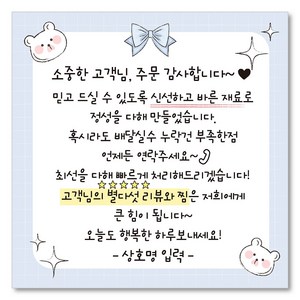 소중한 고객님, 주문 감사합니다~♥
믿고 드실 수 있도록 신선하고 바른 재료로
정성을 다해 만들었습니다.
혹시라도 배달실수 누락건 부족한점
언제든 연락주세요~
최선을 다해 빠르게 처리해드리겠습니다!
고객님의 별다섯 리뷰와 찜은 저희에게
큰 힘이 됩니다~
오늘도 행복한 하루보내세요!
- 상호명 입력 -